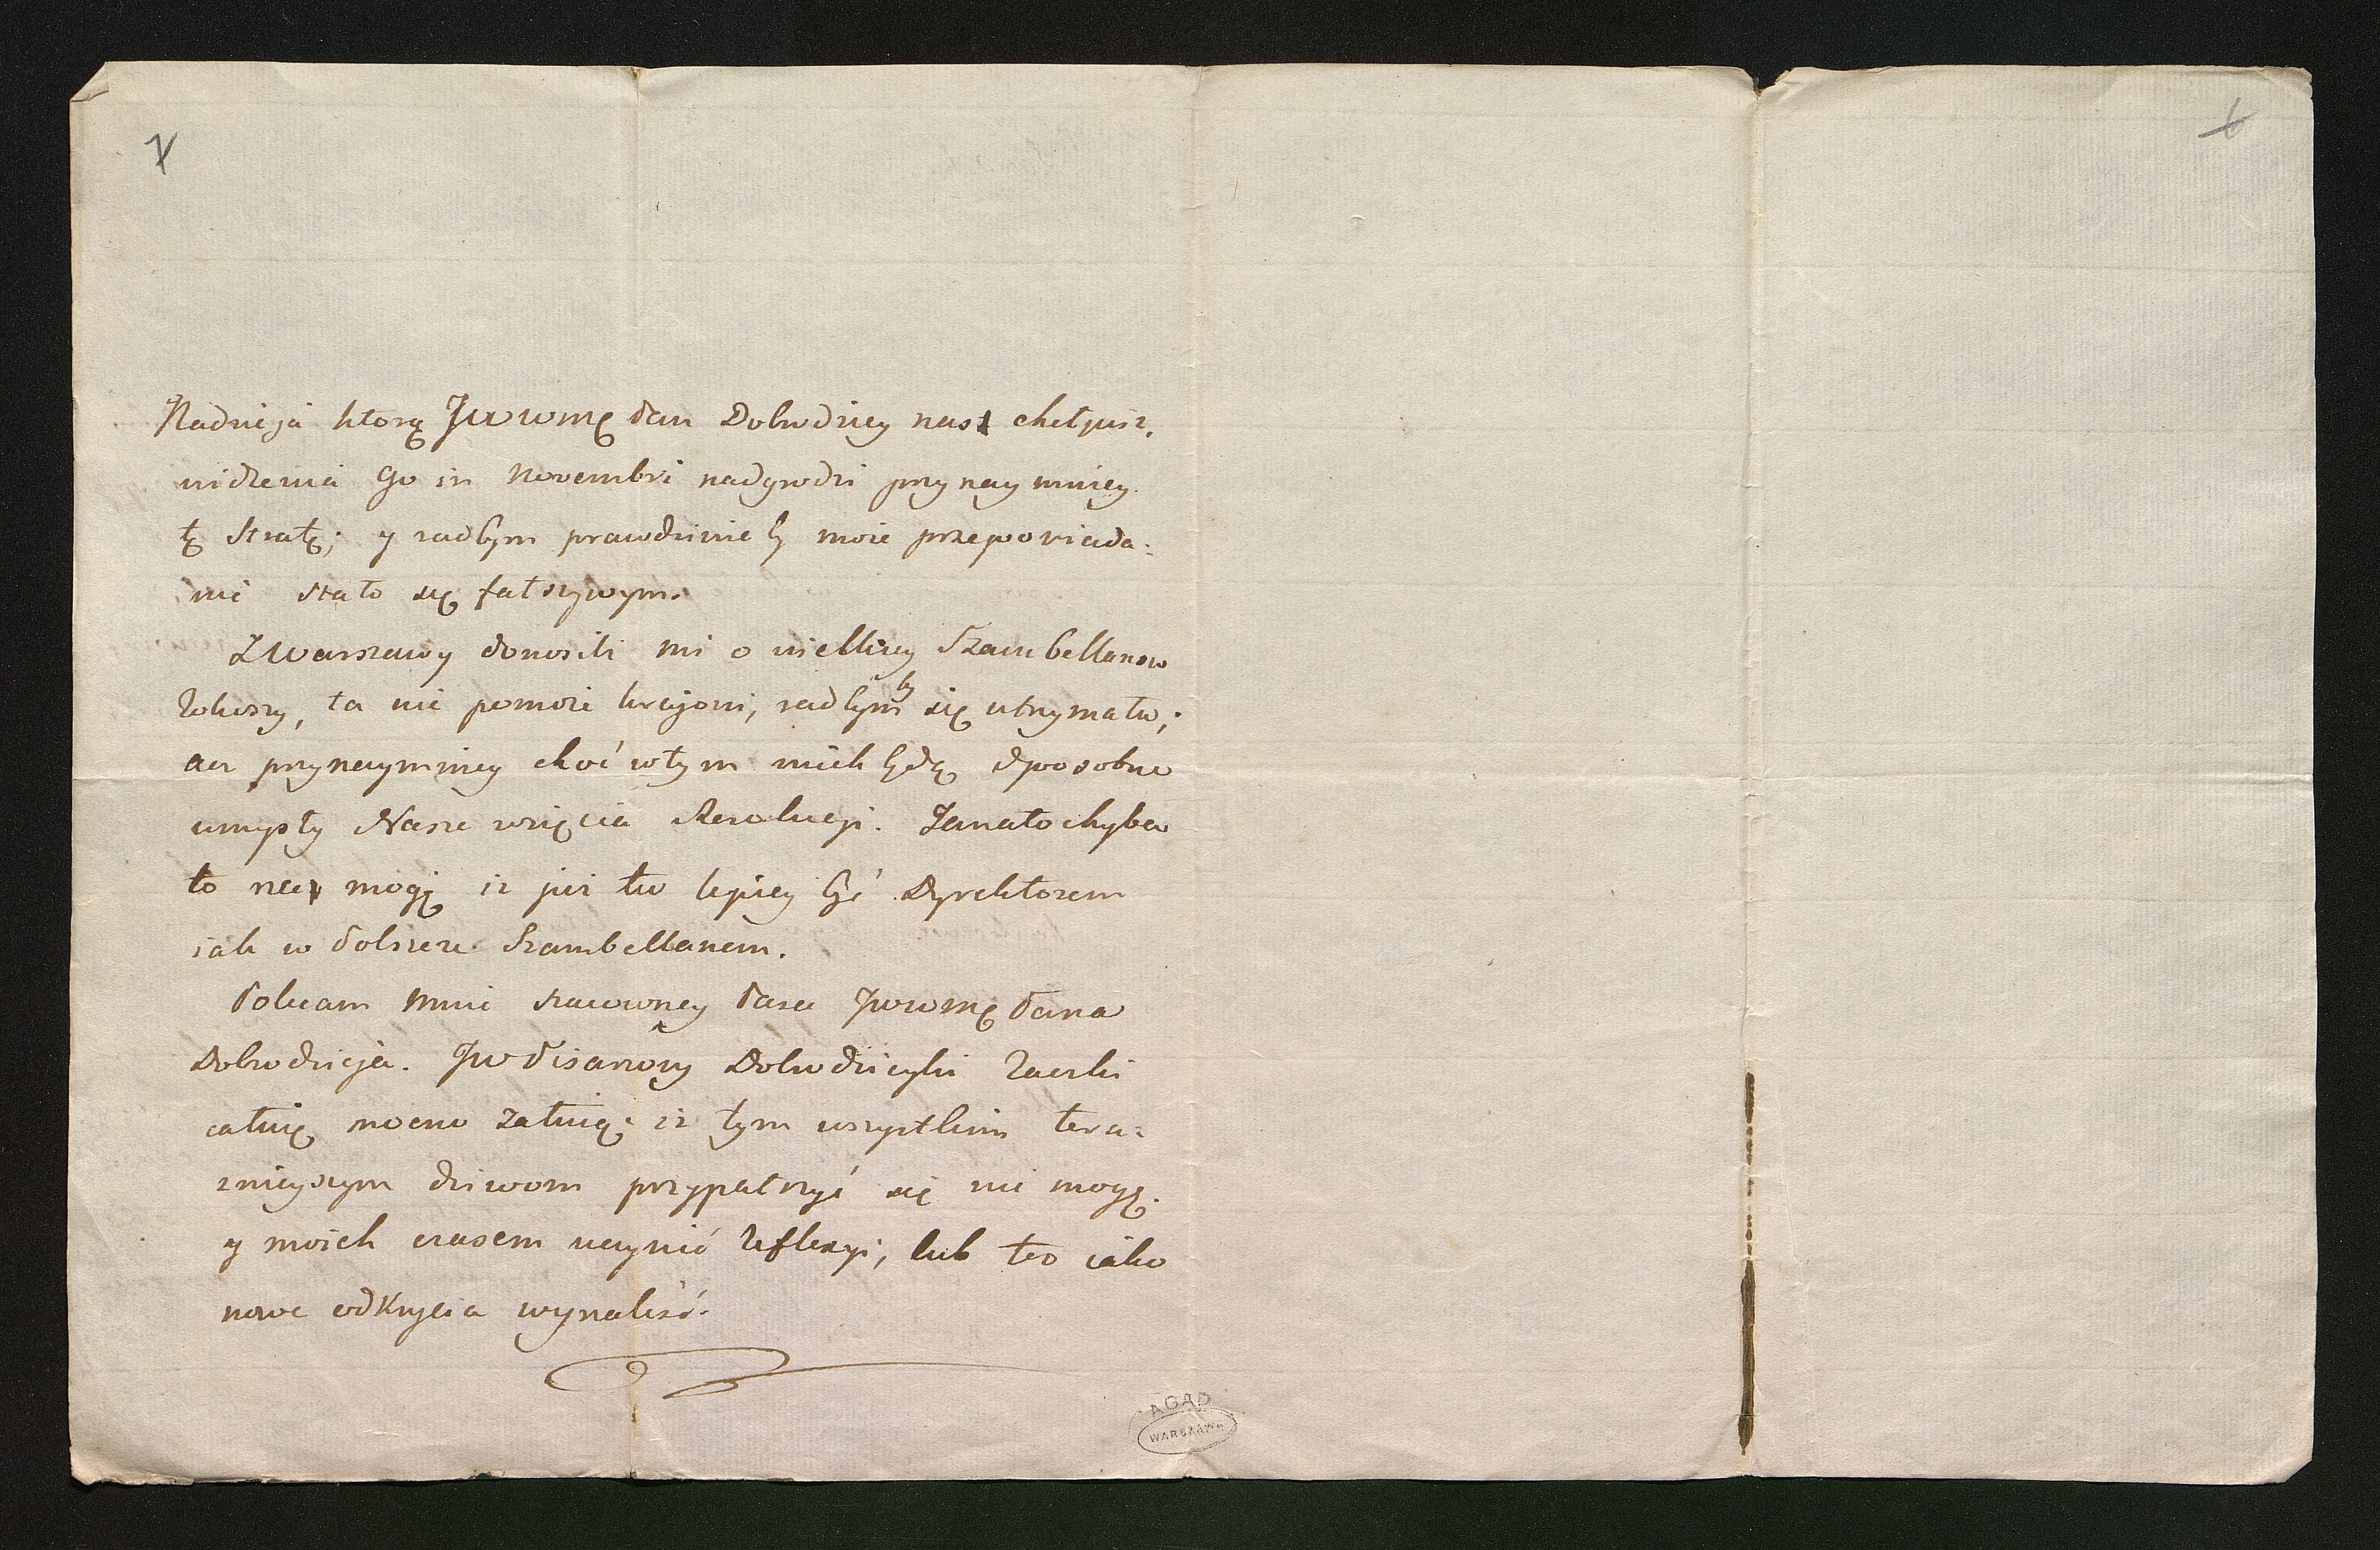 7
6
Nadzieja ktorą JWWmę Pan Dobrodziey nas chełpisz,
widzenia Go in Novembri nadgrodzi przynaymniey
tę Stratę; y radbym prawdziwie by moie przepowiada=
nie stało się fałszywym.
Z Warszawy donosili mi o wielkiey Szambellanow
Rokoszy, ta nie pomoże krajowi, radbym by się utrzymała;
az przynaymniey choć w tym niech będą sposobne
umysły Nasze wzięcia Rewolucji. Ja na to chyba
to rzec mogę iż już tu lepiey być Dyrektorem
iak w Polszcze Szambellanem.
Polecam mnie szacowney Łasce JWWmę Pana
Dobrodzieja. JW Pisarzowy Dobrodzieyki Rączki
całuię mocno żałuię; iż tym wszystkim tera=
znieyszym dziwom przypatrzyć się nie mogę.
y moich czasem uczynić Reflexyi, lub też iako
nowe odkrycia wynaliść.
AGAD
WARSZAWA